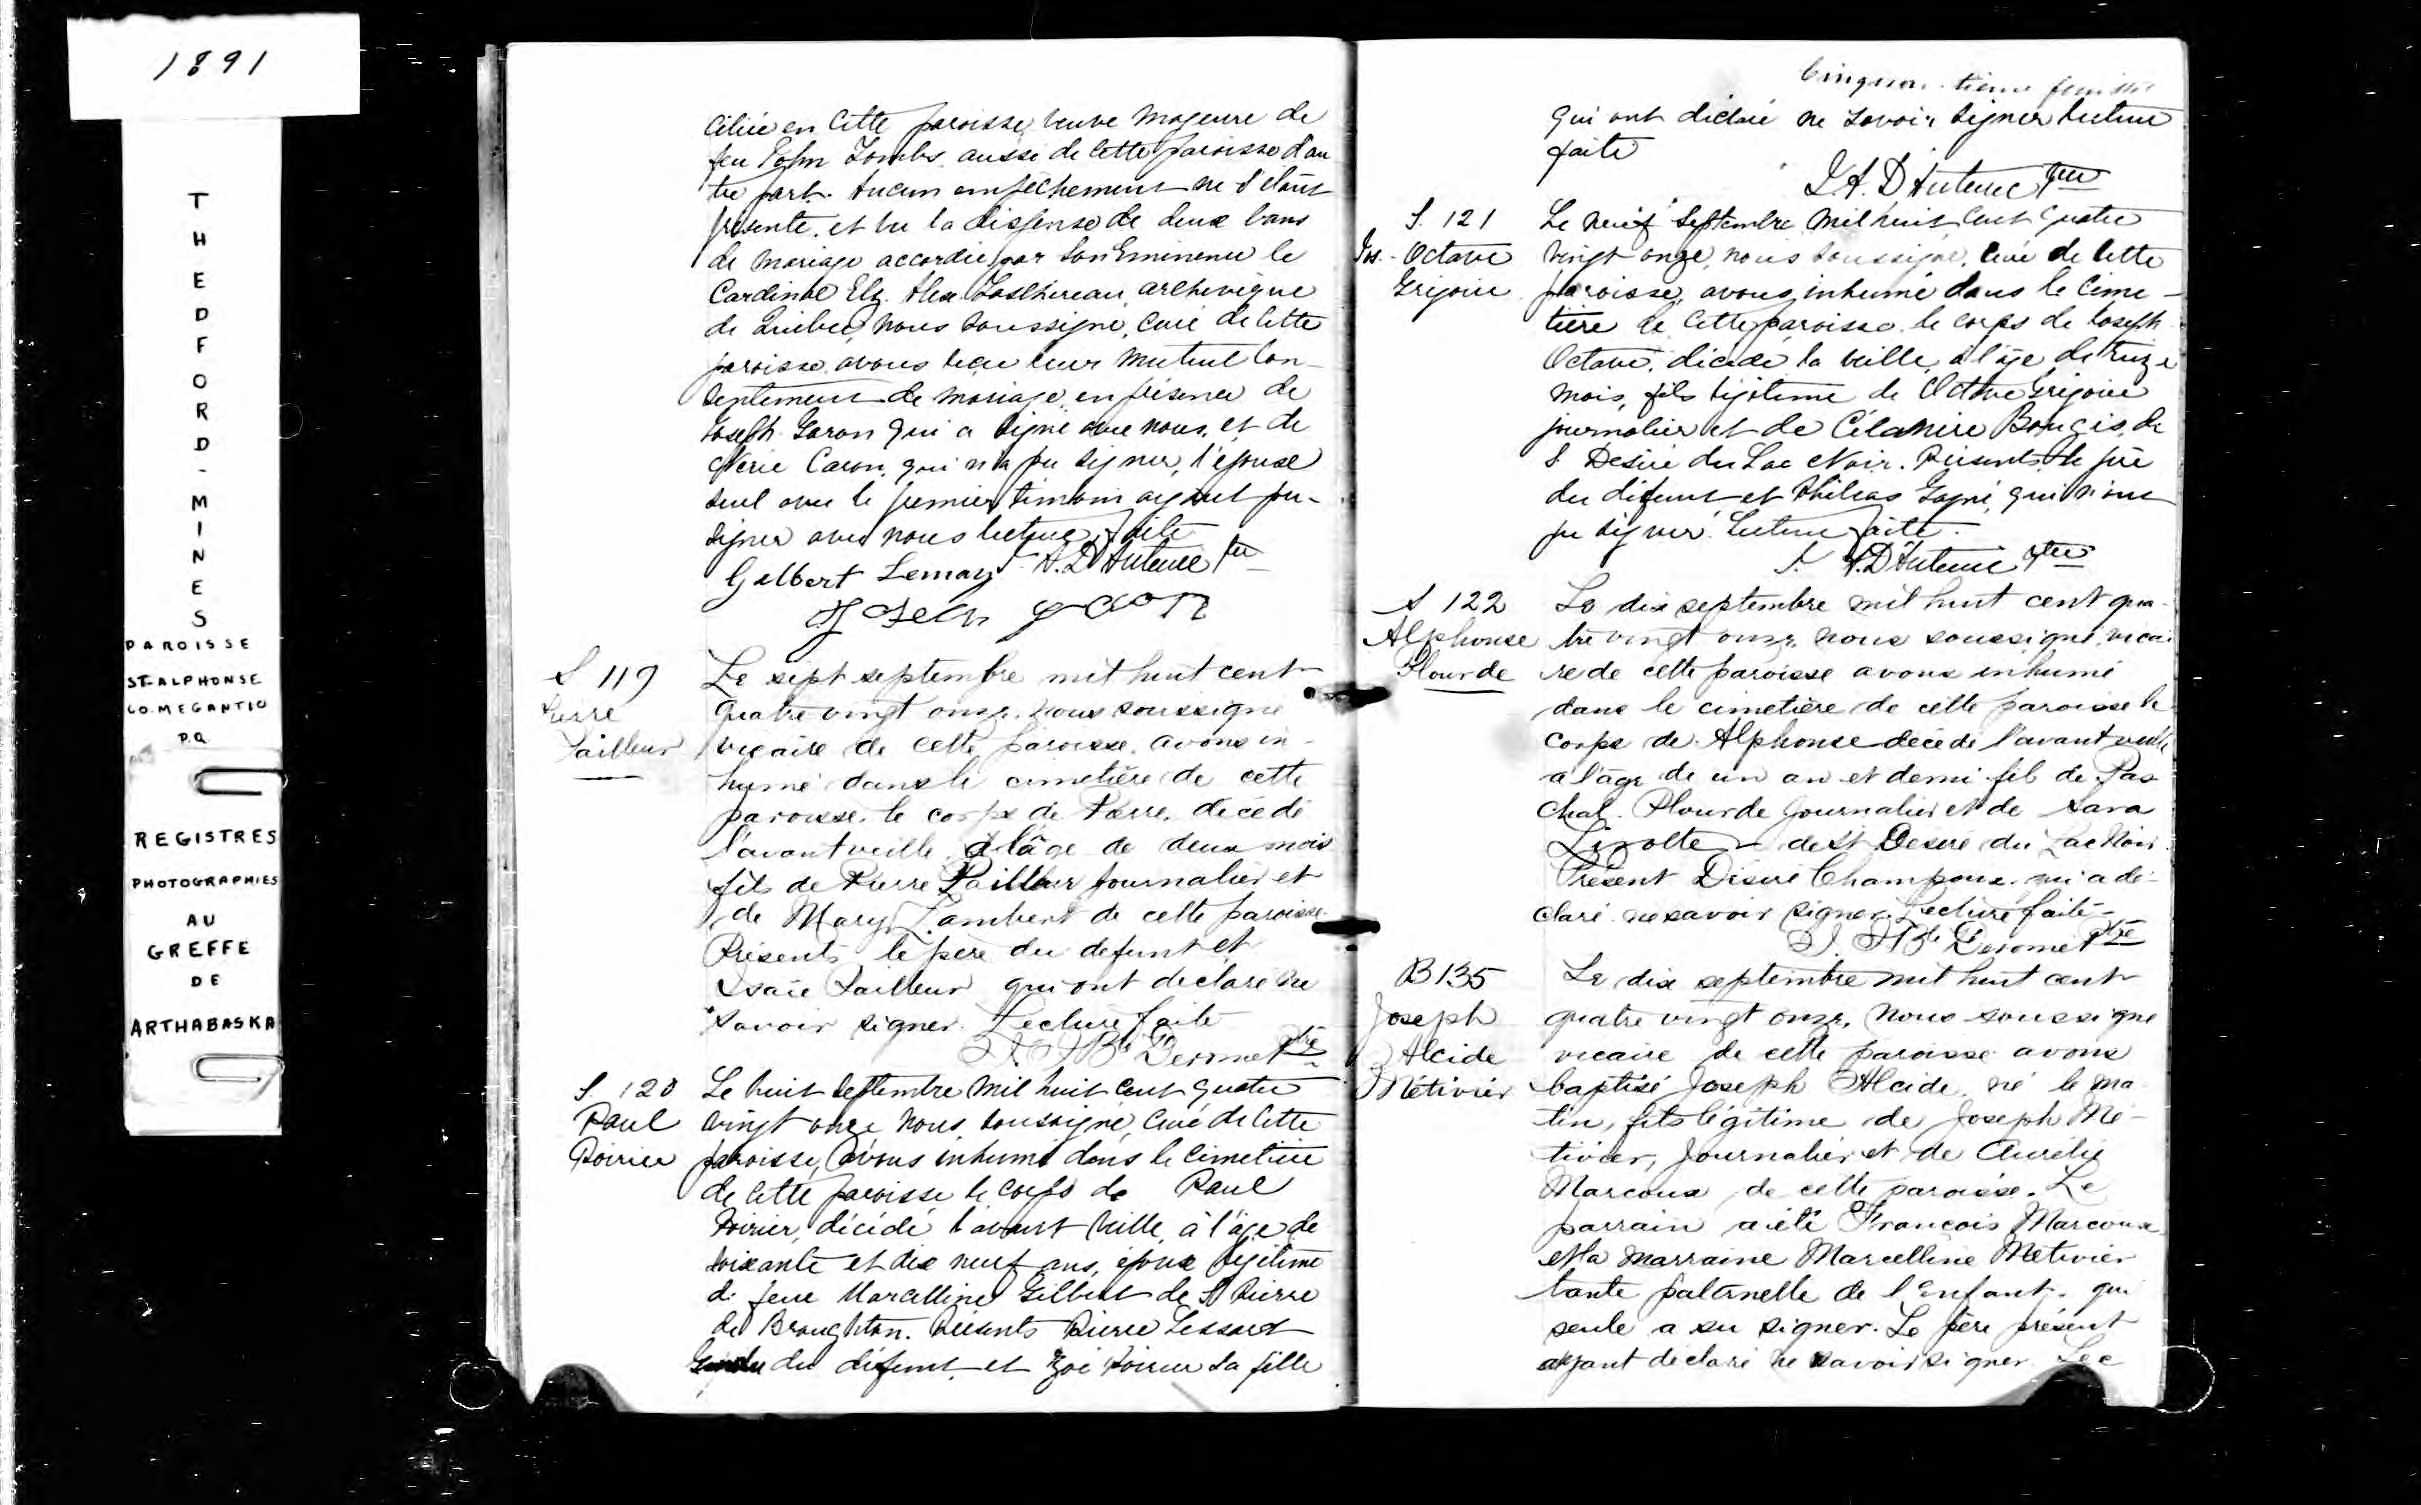 1891
THEDFORD-MINES
PAROISSE
ST-ALPHONSE
CO. MEGANTIC
P.Q.
REGISTRES
PHOTOGRAPHIES
AU
GREFFE
DE
ARTHABASKA
ciliée en cette paroisse, veuve majeure de
feu John aussi de cette paroisse d'au
tre part. Aucun empêchement ne s'étant
présenté, et vu la dispense de deux bans
de mariage accordée par Son Eminence le
Cardinal Elz. Alex. Taschereau, archevêque
de Québec, nous soussigné, curé de cette
paroisse avons reçu leur mutuel con-
sentement de mariage, en présence de
Joseph Garon qui a signé avec nous, et de
Caron, qui n'a pu signer, l'époux
seul avec le premier témoin ayant pu
signer avec nous lecture faite
Gelbert Lemay A. D'Auteuil Ptre
S 119
Pierre
Pailleur
Le sept septembre mil huit cent
quatre vingt onze. nous soussigné
vicaire de cette paroisse. avons in-
humé dans le cimetière de cette
paroisse. le corps de Pierre. décédé
l'avant veille à l'âge de deux mois
fils de Pierre Pailleur Journalier et
de Mary Lambert de cette paroisse.
Présents le père du defunt et
Isaïe Pailleur qui ont déclaré ne
savoir signer. Lecture faite
S. 120
Paul
Poirier
Le huit septembre mil huit cent quatre
vingt onze nous soussigné, curé de cette
paroisse, avons inhumé dans le cimetière
de cette paroisse le corps de Paul
Poirier, décédé l'avant veille, à l'âge de
soixante et dix neuf ans, époux légitime
de feue Marcelline Gilbert de St Pierre
de Broughton. Présents Pierre Lessard
du défunt, et Zoé Poirier sa fille
qui ont déclaré ne savoir signer lecture
faite
J. A. D'Auteuil Ptre
S. 121
Jos. - Octave
Grégoire
Le neuf septembre mil huit cent quatre
vingt onze, nous soussigné, curé de cette
paroisse, avons inhumé dans le cime -
tière de cette paroisse le corps de Joseph
Octave, décédé la veille, à l'âge de treize
mois, fils légitime de Octave Grégoire
journalier et de Célanire Bougis, de
S Désiré du Lac Noir. Présents le père
du défunt et Philias Gagné, qui n'ont
pu signer. Lecture faite.
J. A. D'Auteuil Ptre
S 122
Alphonse
Plourde
Le dix septembre mil huit cent qua-
tre vingt onze. nous soussigné, vicai
re de cette paroisse avons inhumé
dans le cimetière de cette paroisse le
corps de Alphonse décédé l'avant veille
à l'âge de un an et demi fils de Pas
chal. Plourde Journalier et de Sara
Lizotte - de St Desiré du Lac Noir.
Présent Désiré Champoux. qui a dé-
claré ne savoir signer. Lecture faite -
B 135
Joseph
Alcide
Métivier
Le dix septembre mil huit cent
quatre vingt onze, Nous soussigné
vicaire de cette paroisse avons
baptisé Joseph Alcide, né le ma
tin, fils légitime de Joseph Mé-
tivier, Journalier et de Aurélie
Marcoux de cette paroisse. Le
parrain a été François Marcoux
et la marraine Marcelline Metivier
tante paternelle de l'enfant. qui
seule a su signer. Le père présent
ayant déclaré ne savoir signer Lec